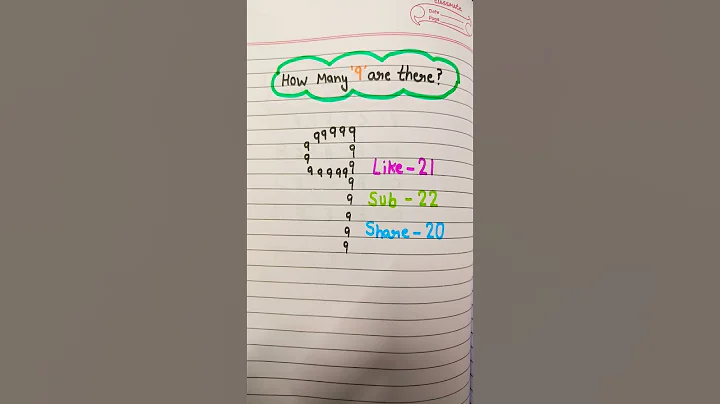 classmate
Date
Page
How Many '9' are there?
99999
9 9
9 9
999999
9
9
9
9
9
Like - 21
Sub - 22
Share - 20